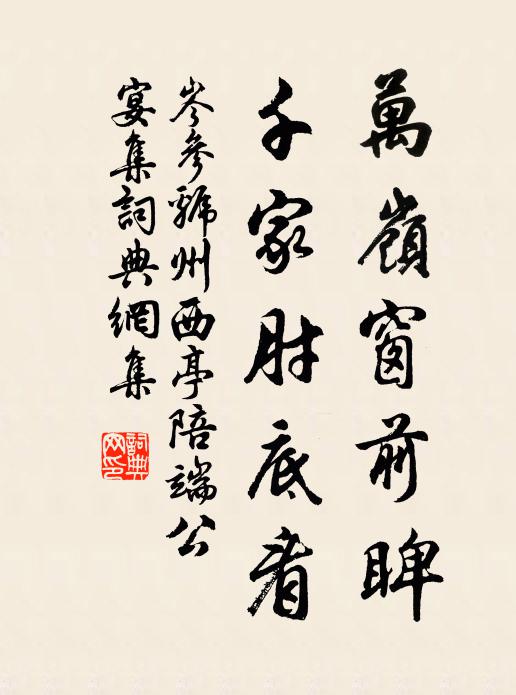 萬嶺窗前睥
千家肘底看
岑參虢州西亭陪端公
宴集詞典網集
詞典
网印